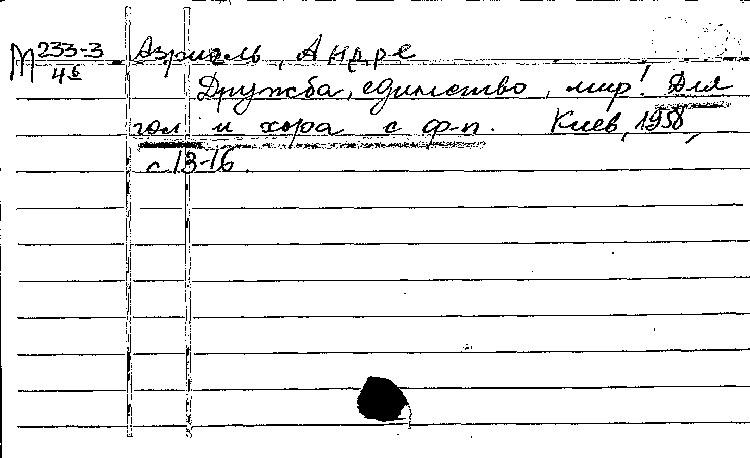 М 233-3 Азриель, Андре
46
Дружба, единство, мир! Для
гол и хора с ф-п. Киев, 1958,
с 13-16.